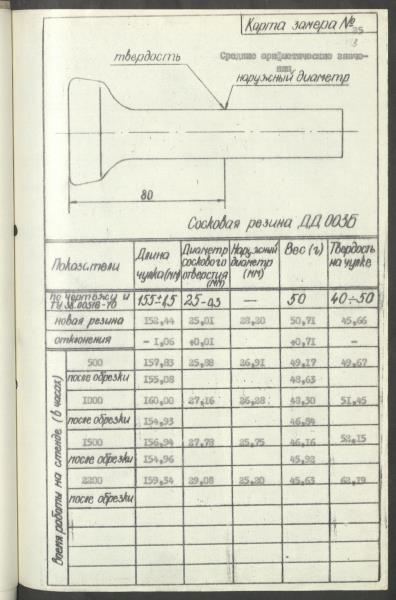 Карта замера № 25
3
твердость
Средние арифметические значе-
ния
наружный диаметр
80
Сосковая резина ДД 003Б
Показатели Длина чулка (мм) Диаметр соскового отверстия (мм) Наружный диаметр (мм) Вес (г) Твердость на чулке
по чертежу и ТУ 38.00518-70 155±1,5 25-0,3 — 50 40÷50
новая резина 152,44 25,01 28,20 50,71 45,66
отклонения - 1,06 +0,01 +0,71 -
Время работы на стенде (в часах)
500 157,83 25,88 26,91 49,17 49,67
после обрезки 155,08 48,63
1000 160,00 27,16 26,28 48,30 51,45
после обрезки 154,93 46,84
1500 156,94 27,78 25,75 46,16 52,15
после обрезки 154,96 45,92
2200 159,54 29,08 25,20 45,63 62,19
после обрезки